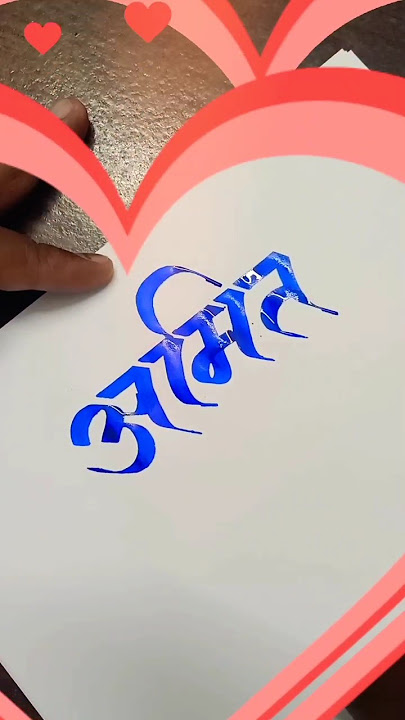 अमित